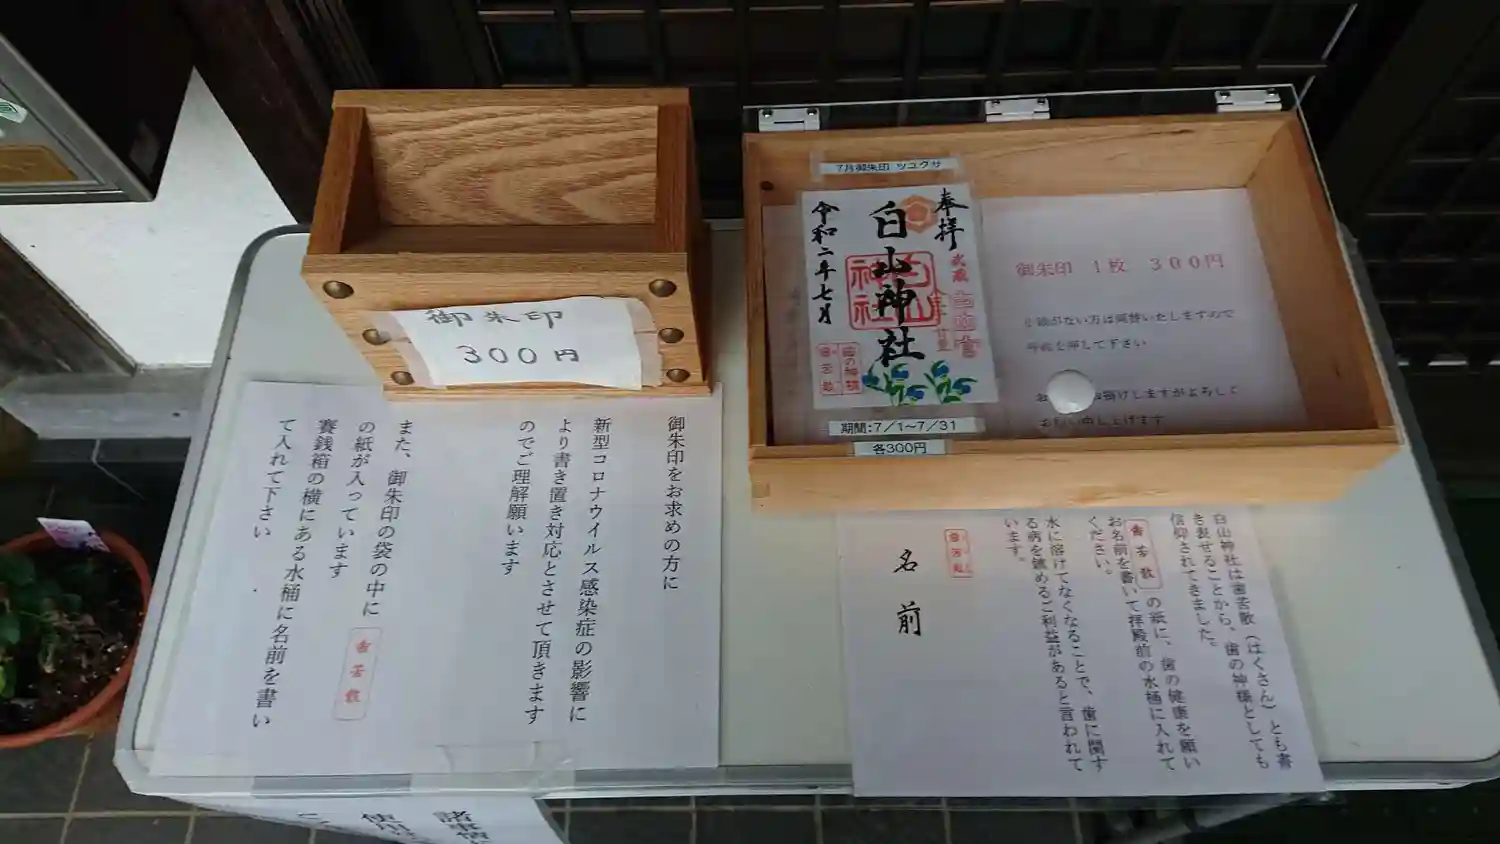 御朱印
300円
7月御朱印 ツユクサ
奉拝
武蔵
白山神社
白山神社
令和二年七月
歯の神様
歯苦散
期間:7/1〜7/31
各300円
御朱印 1枚 300円
小銭がない方は両替いたしますので
呼鈴を押して下さい
掛けしますがよろしく
お願い申し上げます
御朱印をお求めの方に
新型コロナウイルス感染症の影響に
より書き置き対応とさせて頂きます
のでご理解願います
また、御朱印の袋の中に 歯苦散
の紙が入っています
賽銭箱の横にある水桶に名前を書い
て入れて下さい
白山神社は歯苦散(はくさん)とも書
き表せることから、歯の神様としても
信仰されてきました。
歯苦散 の紙に、歯の健康を願い
お名前を書いて拝殿前の水桶に入れて
ください。
水に溶けてなくなることで、歯に関す
る病を鎮めるご利益があると言われて
います。
歯苦散
名前
諸事情